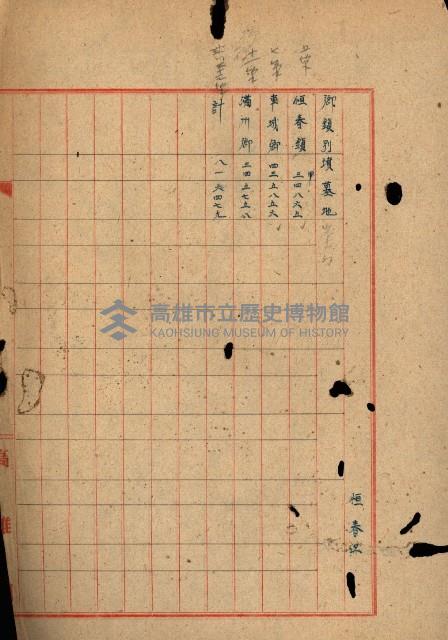 恒春區
鄉鎮別 墳墓地
五筆 恒春鎮 甲 三四八六五
七筆 車城鄉 四三五八五六
滿州鄉 三四五七五八
計 八一六四七九
高雄
高雄市立歷史博物館
KAOHSIUNG MUSEUM OF HISTORY